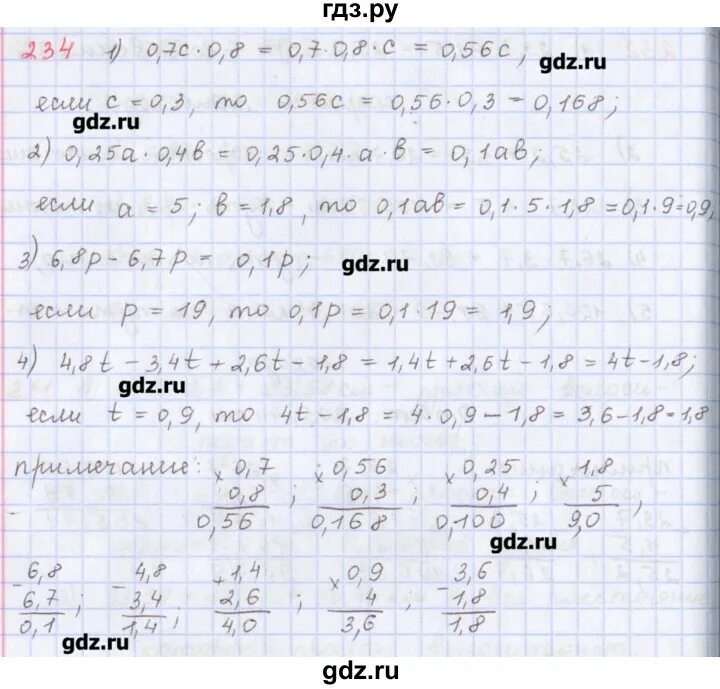 гдз.ру
234 1) 0,7c·0,8 = 0,7·0,8·c = 0,56c;
gdz.ru
если c = 0,3, то 0,56c = 0,56·0,3 = 0,168;
gdz.ru
2) 0,25a·0,4в = 0,25·0,4·a·в = 0,1aв;
если a = 5; в = 1,8, то 0,1aв = 0,1·5·1,8 = 0,1·9 = 0,9,
3) 6,8p − 6,7p = 0,1p;
gdz.ru
если p = 19, то 0,1p = 0,1·19 = 1,9;
4) 4,8t − 3,4t + 2,6t − 1,8 = 1,4t + 2,6t − 1,8 = 4t − 1,8;
gdz.ru
если t = 0,9, то 4t − 1,8 = 4·0,9 − 1,8 = 3,6 − 1,8 = 1,8
примечание: × 0,7 × 0,56 × 0,25 × 1,8
0,8 ; 0,3 ; 0,4 ; 5
0,56 0,168 0,100 9,0
gdz.ru
− 6,8 − 4,8 + 1,4 × 0,9 − 3,6
6,7 ; 3,4 ; 2,6 ; 4 ; 1,8
0,1 1,4 4,0 3,6 1,8
gdz.ru
gdz.ru